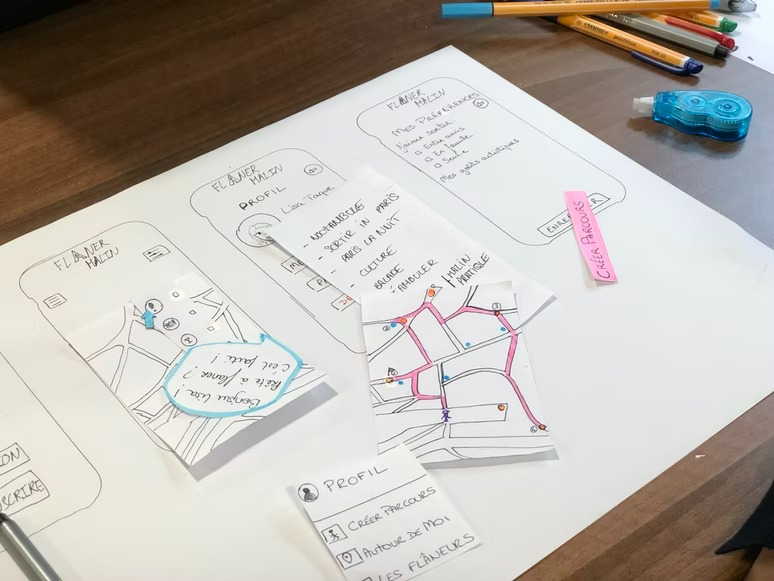 FLÂNER
MALIN
MES PRÉFÉRENCES
J'aime sortir
Entre amis
En famille
Seule
Mes goûts artistiques
CRÉER PARCOURS
FLÂNER
MALIN
PROFIL
Lisa Taque
- NOCTAMBULE
- SORTIR IN PARIS
- PARIS LA NUIT
- CULTURE
BALADE
MALIN
PRATIQUE
FLÂNER
MALIN
Bonjour Lisa !
Prête à flâner ?
C'est parti !
SCRIRE
PROFIL
CRÉER PARCOURS
AUTOUR DE MOI
LES FLÂNEURS